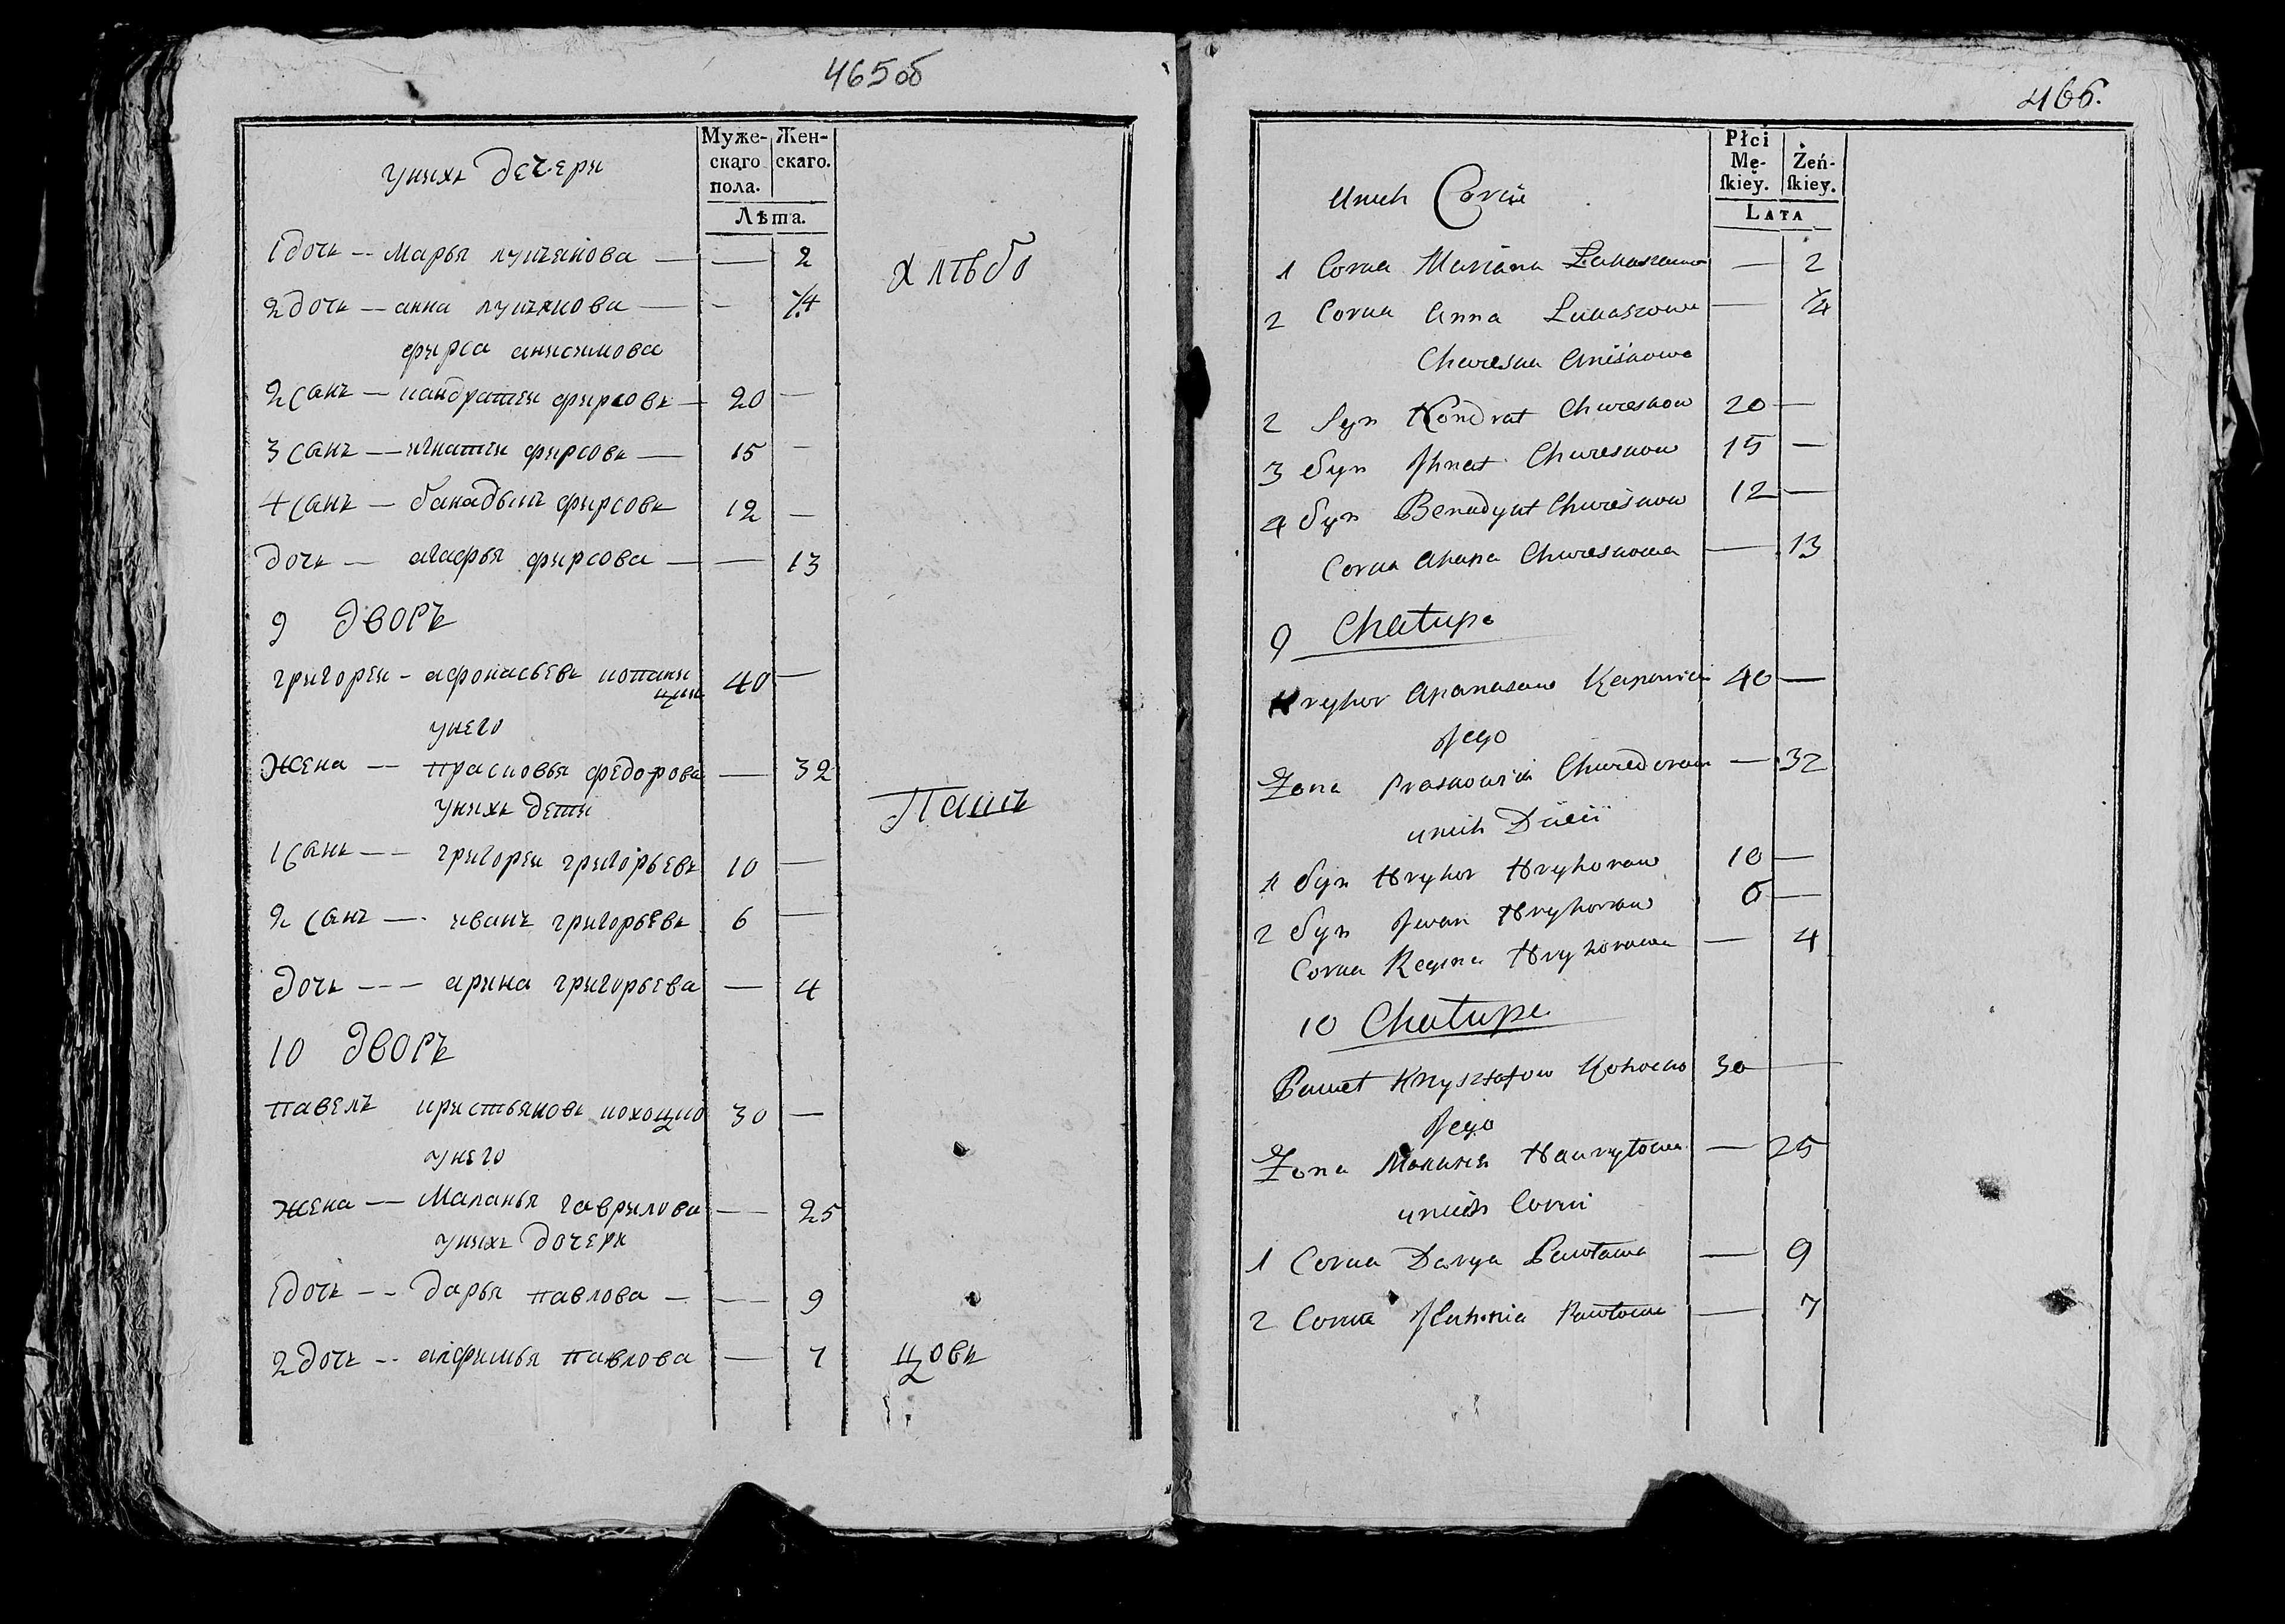 465об
Муже-
скаго
пола.
Жен-
скаго.
Лѣта.
унихъ дечери
1 дочь -- марья лукъянова — — 2
хлѣбо
2 дочь — анна лукянова — — ¼
фирса анисимова
2 санъ — кандратеи фирсовъ — 20 —
3 санъ — игнатеи фирсовъ — 15 —
4 санъ — банадыкъ фирсовъ 12 —
дочь — агафья фирсова — — 13
9 дворъ
григореи - афонасьевъ
40 —
унего
жена -- прасковья федорова — 32
унихъ дети
Пашъ
1 санъ -- григореи григорьевъ 10 —
2 санъ -- иванъ григорьевъ 6 —
дочь --- арина григорьева — 4
10 дворъ
павелъ кристьяновъ кохоцко 30 —
унего
жена -- маланья гаврилова — 25
унихъ дочери
1 дочь -- дарья павлова — — 9
2 дочь -- алфимья павлова — 7
цовъ
466.
Płci
Mę-
ſkiey.
Żeń-
ſkiey.
Lata
unich Corki
1 Corka Mariana Łukaszowa — 2
2 Corka Anna Łukaszowa — ¼
2 Syn Kondrat Chwieskow 20 —
3 Syn Jhnat Chwieskow 15 —
4 Syn Benedykt Chwieskow 12 —
Corka Ahapa Chwieskowa — 13
9 Chałupa
Hryhor Apanasow
40 —
Jego
Zona Praskowia Chwiedorowa — 32
unich Dzieci
1 Syn Hryhor Hryhorow 10 —
2 Syn Jwan Hryhorow 6 —
Corka Regina Hryhorowa — 4
10 Chałupa
Paweł Krzysztofow
30 —
Jego
Zona Małania Hawryłowa — 25
unich Corki
1 Corka Darya Pawłowa — 9
2 Corka
Pawłowa — 7